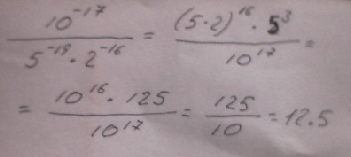 10⁻¹⁷ / (5⁻¹⁹ · 2⁻¹⁶) = (5·2)¹⁶ · 5³ / 10¹⁷ =
= 10¹⁶ · 125 / 10¹⁷ = 125 / 10 = 12.5